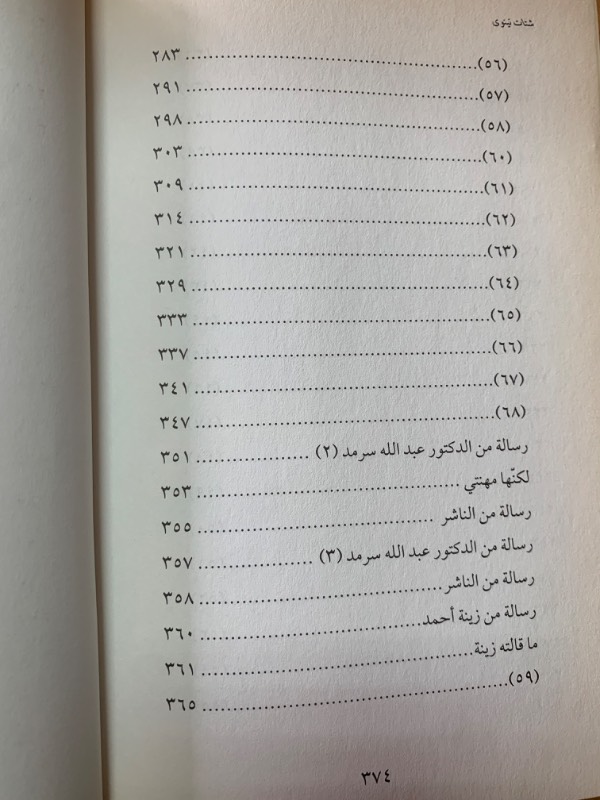 شتات نينوى
(٥٦)........................................................ ٢٨٣
(٥٧)........................................................ ٢٩١
(٥٨)........................................................ ٢٩٨
(٦٠)........................................................ ٣٠٣
(٦١)........................................................ ٣٠٩
(٦٢)........................................................ ٣١٤
(٦٣)........................................................ ٣٢١
(٦٤)........................................................ ٣٢٩
(٦٥)........................................................ ٣٣٣
(٦٦)........................................................ ٣٣٧
(٦٧)........................................................ ٣٤١
(٦٨)........................................................ ٣٤٧
رسالة من الدكتور عبد الله سرمد (٢) ................... ٣٥١
لكنّها مهنتي ............................................ ٣٥٣
رسالة من الناشر ........................................ ٣٥٥
رسالة من الدكتور عبد الله سرمد (٣) ................... ٣٥٧
رسالة من الناشر......................................... ٣٥٨
رسالة من زينة أحمد..................................... ٣٦٠
ما قالته زينة.............................................. ٣٦١
(٥٩)........................................................ ٣٦٥
٣٧٤